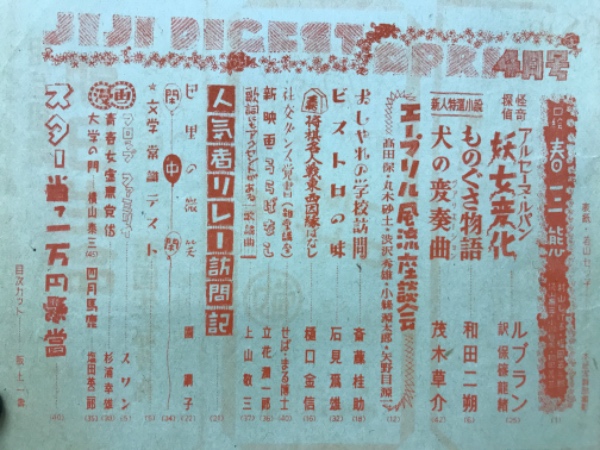 JIJI DIGEST APRIL 4月号
口絵 春三態 (1)
怪奇探偵 アルセーヌ・ルパン 妖女変化 ルブラン 訳 保篠龍緒 (25)
新人特選小説
ものぐさ物語 和田二朔 (6)
犬の変奏曲 茂木草介 (42)
エープリル風流座談会 (12)
高田保・丸木砂土・渋沢秀雄・小絲源太郎・矢野目源一
おしやれの学校訪問 斎藤桂助 (18)
ビストロの味 石見為雄 (32)
将棋名人戦東西因縁ばなし 樋口金信 (16)
社交ダンス覚書 せば・まる博士 (40)
新映画 立花潤一郎 (36)
歌謡曲 上山敬三 (37)
人気者リレー訪問記 (21)
巴里の微笑 園順子 (22)
閑中閑 (34)
★文学常識テスト (5)
漫画
スリン (5)
青春女宝黒食伝 杉浦幸雄 (30)
大学の門 横山泰三 (45)
四月馬鹿 塩田英二郎 (35)
スター当て一万円懸賞 (46)
目次カット